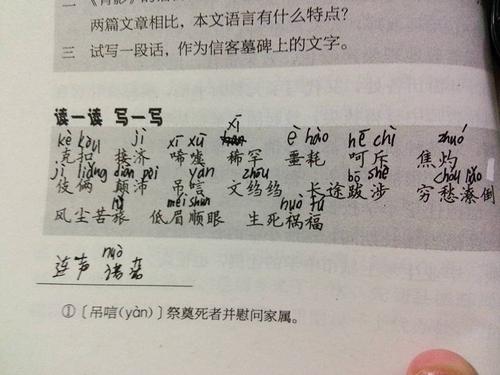 两篇文章相比，本文语言有什么特点？
三 试写一段话，作为信客墓碑上的文字。
读一读 写一写
kè kòu jì xī xū xī è hào hē chì zhuó
克扣 接济 唏嘘 稀罕 噩耗 呵斥 焦灼
jì liǎng diān pèi yàn zhōu bō shè chóu liáo
伎俩 颠沛 吊唁 文绉绉 长途跋涉 穷愁潦倒
méi shùn huò fú
风尘苦旅 低眉顺眼 生死祸福
连声 诺诺
nuò
①〔吊唁(yàn)〕祭奠死者并慰问家属。